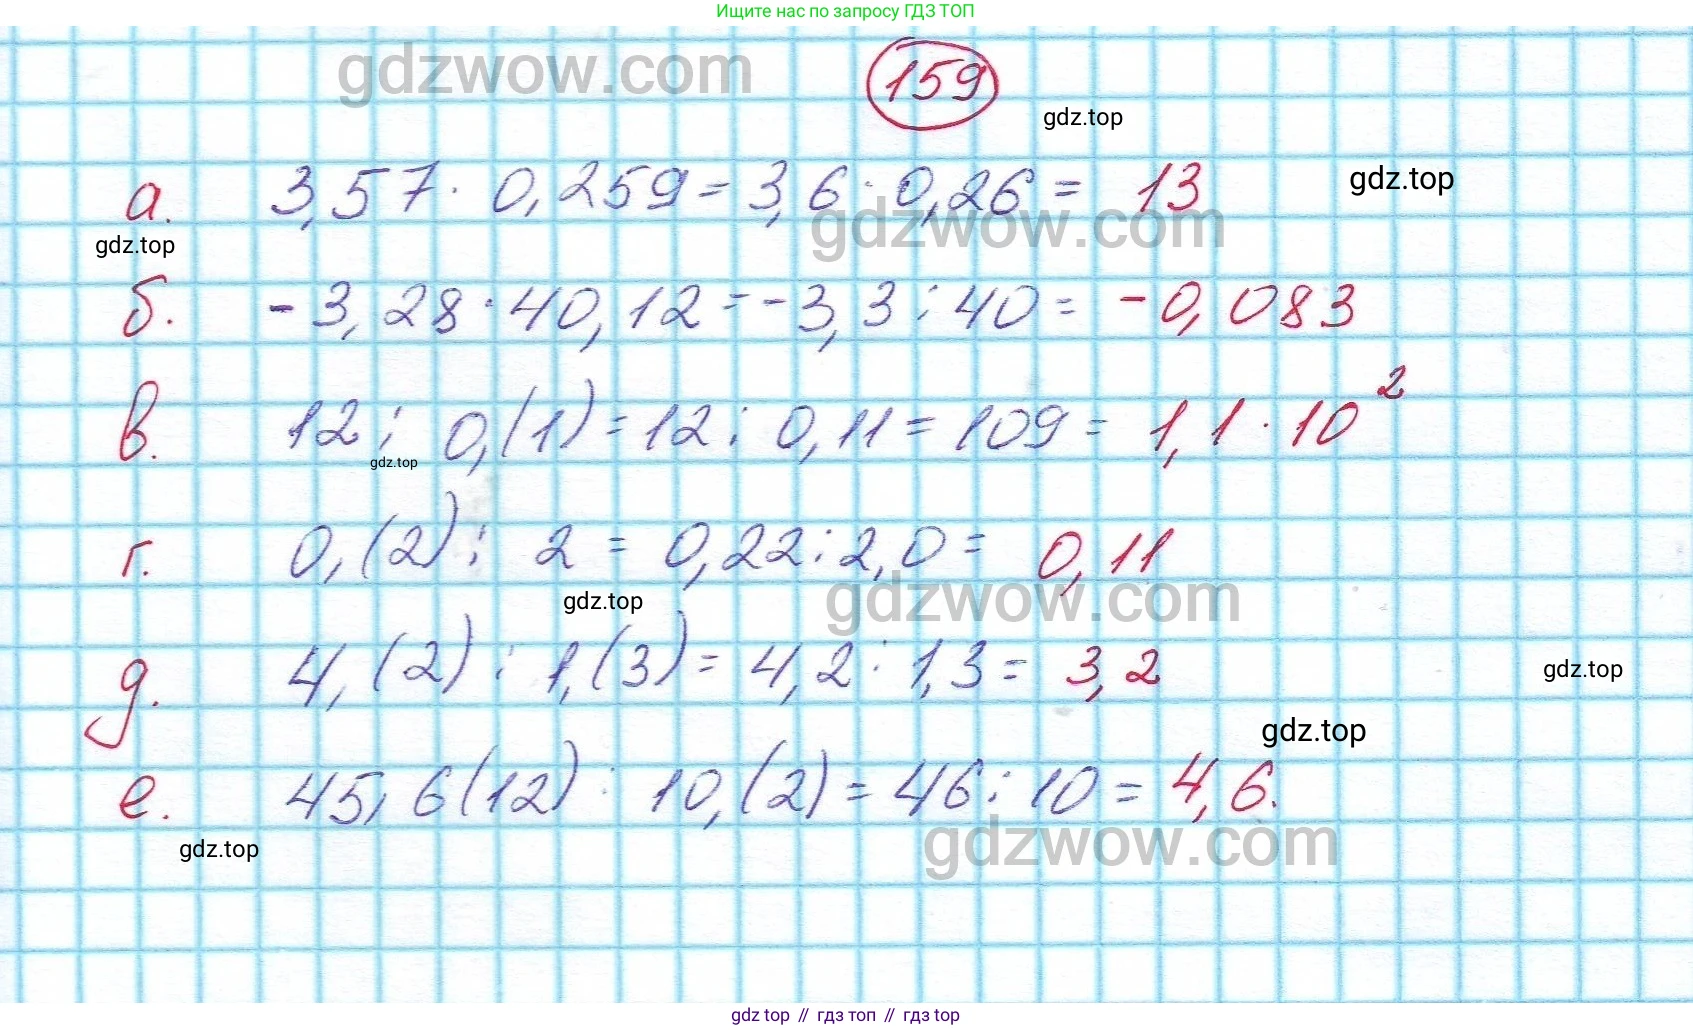 Ищите нас по запросу ГДЗ ТОП
gdzwow.com
159
gdz.top
а. 3,57 · 0,259 = 3,6 : 0,26 = 13
gdz.top
gdzwow.com
gdz.top
б. -3,28 · 40,12 = -3,3 : 40 = -0,083
в. 12 : 0,(1) = 12 : 0,11 = 109 = 1,1 · 10²
gdz.top
г. 0,(2) : 2 = 0,22 : 2,0 = 0,11
gdz.top
gdzwow.com
д. 4,(2) : 1,(3) = 4,2 : 1,3 = 3,2
gdz.top
gdz.top
е. 45,6(12) : 10,(2) = 46 : 10 = 4,6.
gdz.top
gdzwow.com
gdz.top // гдз топ // гдз.top